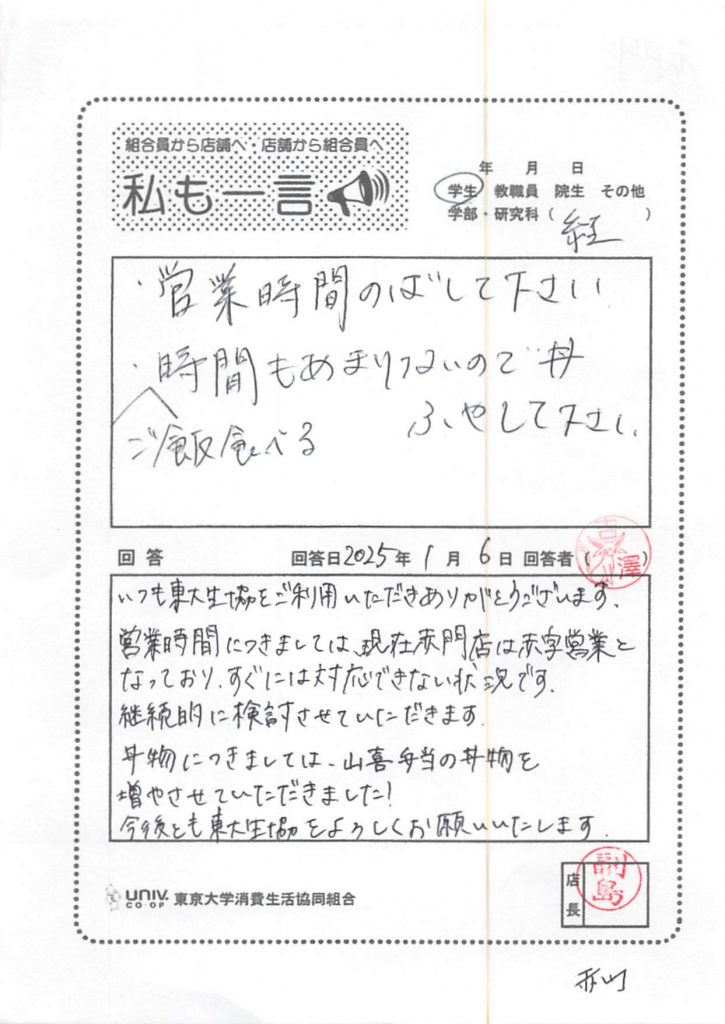 組合員から店舗へ・店舗から組合員へ
私も一言
年 月 日
学生 教職員 院生 その他
学部・研究科( 経 )
・営業時間のばして下さい
・時間もあまりないので丼
ご飯食べる
ふやして下さい
回答 回答日2025年1月6日 回答者( 澤)
いつも東大生協をご利用いただきありがとうございます。
営業時間につきましては、現在赤門店は赤字営業と
なっており、すぐには対応できない状況です。
継続的に検討させていただきます。
丼物につきましては、山喜弁当の丼物を
増やさせていただきました!
今後とも東大生協をよろしくお願いいたします。
UNIV. CO-OP 東京大学消費生活協同組合
店長
副島
赤門